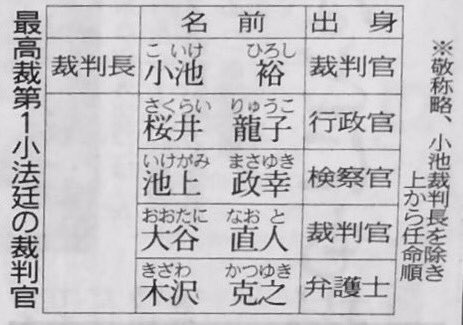 ※敬称略、小池裁判長を除き
上から任命順
名前 出身
こいけ ひろし
裁判長 小池 裕 裁判官
さくらい りゅうこ
桜井 龍子 行政官
いけがみ まさゆき
池上 政幸 検察官
おおたに なおと
大谷 直人 裁判官
きざわ かつゆき
木沢 克之 弁護士
最高裁第1小法廷の裁判官